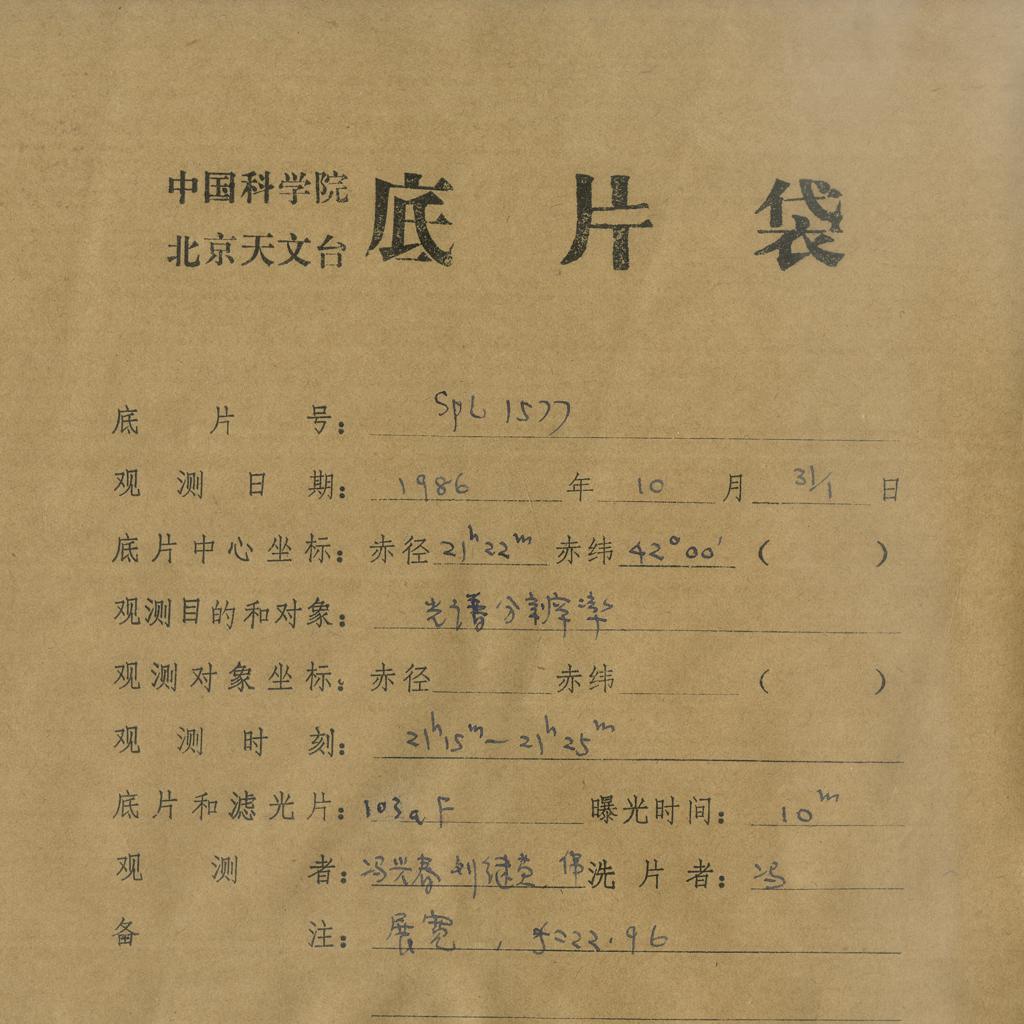 中国科学院
北京天文台
底片袋
底片号： SpL 1577
观测日期： 1986 年 10 月 31/1 日
底片中心坐标： 赤径 21h22m 赤纬 42°00′ （ ）
观测目的和对象： 光谱分辨率
观测对象坐标： 赤径 赤纬 （ ）
观测时刻： 21h15m－21h25m
底片和滤光片： 103aF 曝光时间： 10m
观测者： 冯兴春 刘继英 洗片者： 冯
备注： 展宽 , f=22.96